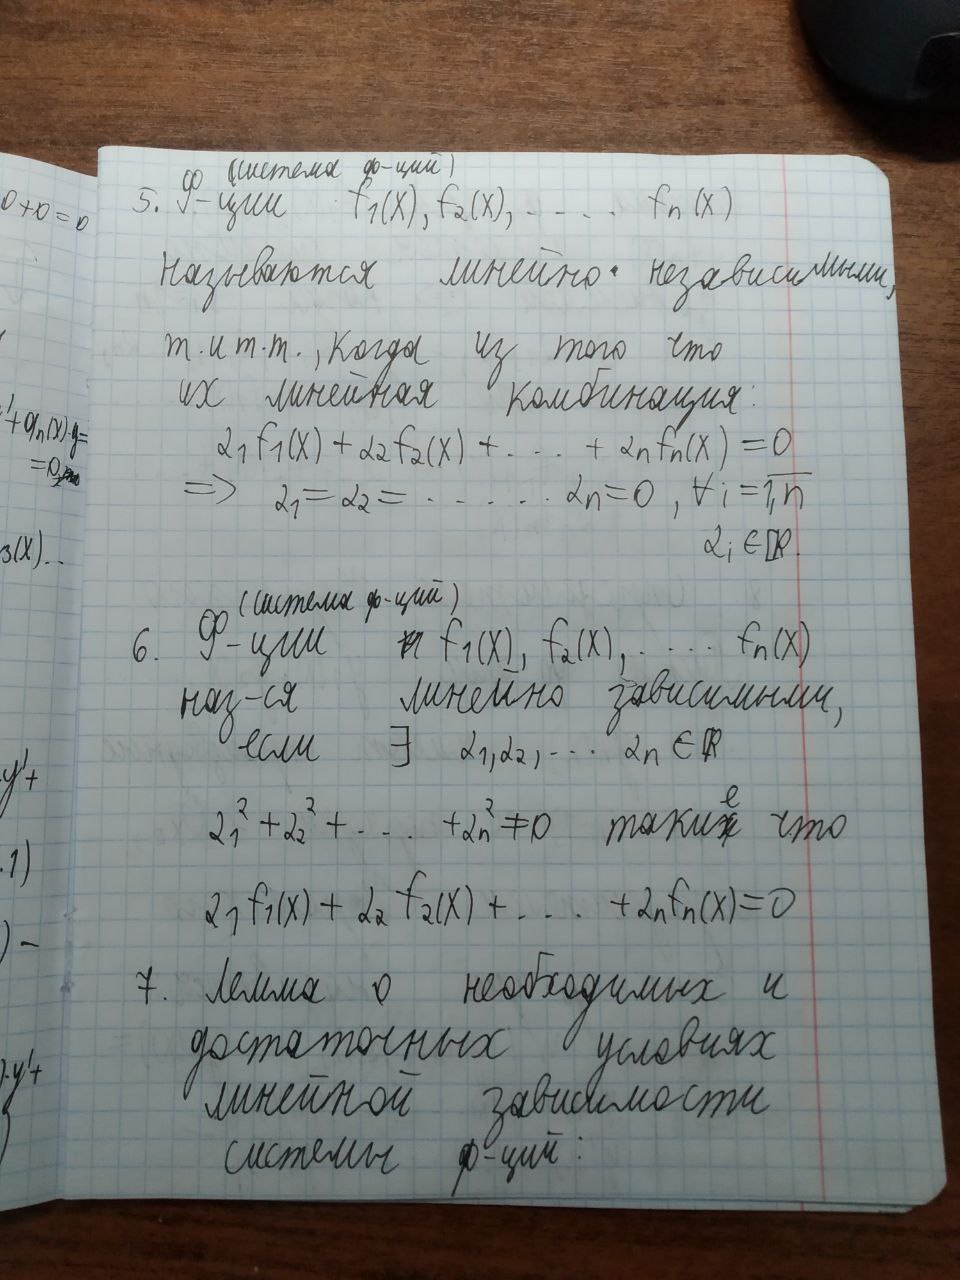 (система ф-ций)
5. Ф-ции f₁(x), f₂(x), . . . . fₙ(x)
называются линейно независимыми,
т.и т.т., когда из того что
их линейная комбинация:
α₁f₁(x) + α₂f₂(x) + . . . + αₙfₙ(x) = 0
=> α₁ = α₂ = . . . . . . αₙ = 0 , ∀i = 1,n
αᵢ ∈ ℝ.
(система ф-ций)
6. Ф-ции f₁(x), f₂(x), . . . . fₙ(x)
наз-ся линейно зависимыми,
если ∃ α₁, α₂, ... αₙ ∈ ℝ
α₁² + α₂² + . . . . + αₙ² ≠ 0 такие что
α₁f₁(x) + α₂ f₂(x) + . . . . + αₙfₙ(x) = 0
7. Лемма о необходимых и
достаточных условиях
линейной зависимости
системы ф-ций:
0+0=0
'+aₙ(x)·y=
=0
₃(x)...
y'+
.1)
) −
).y'+